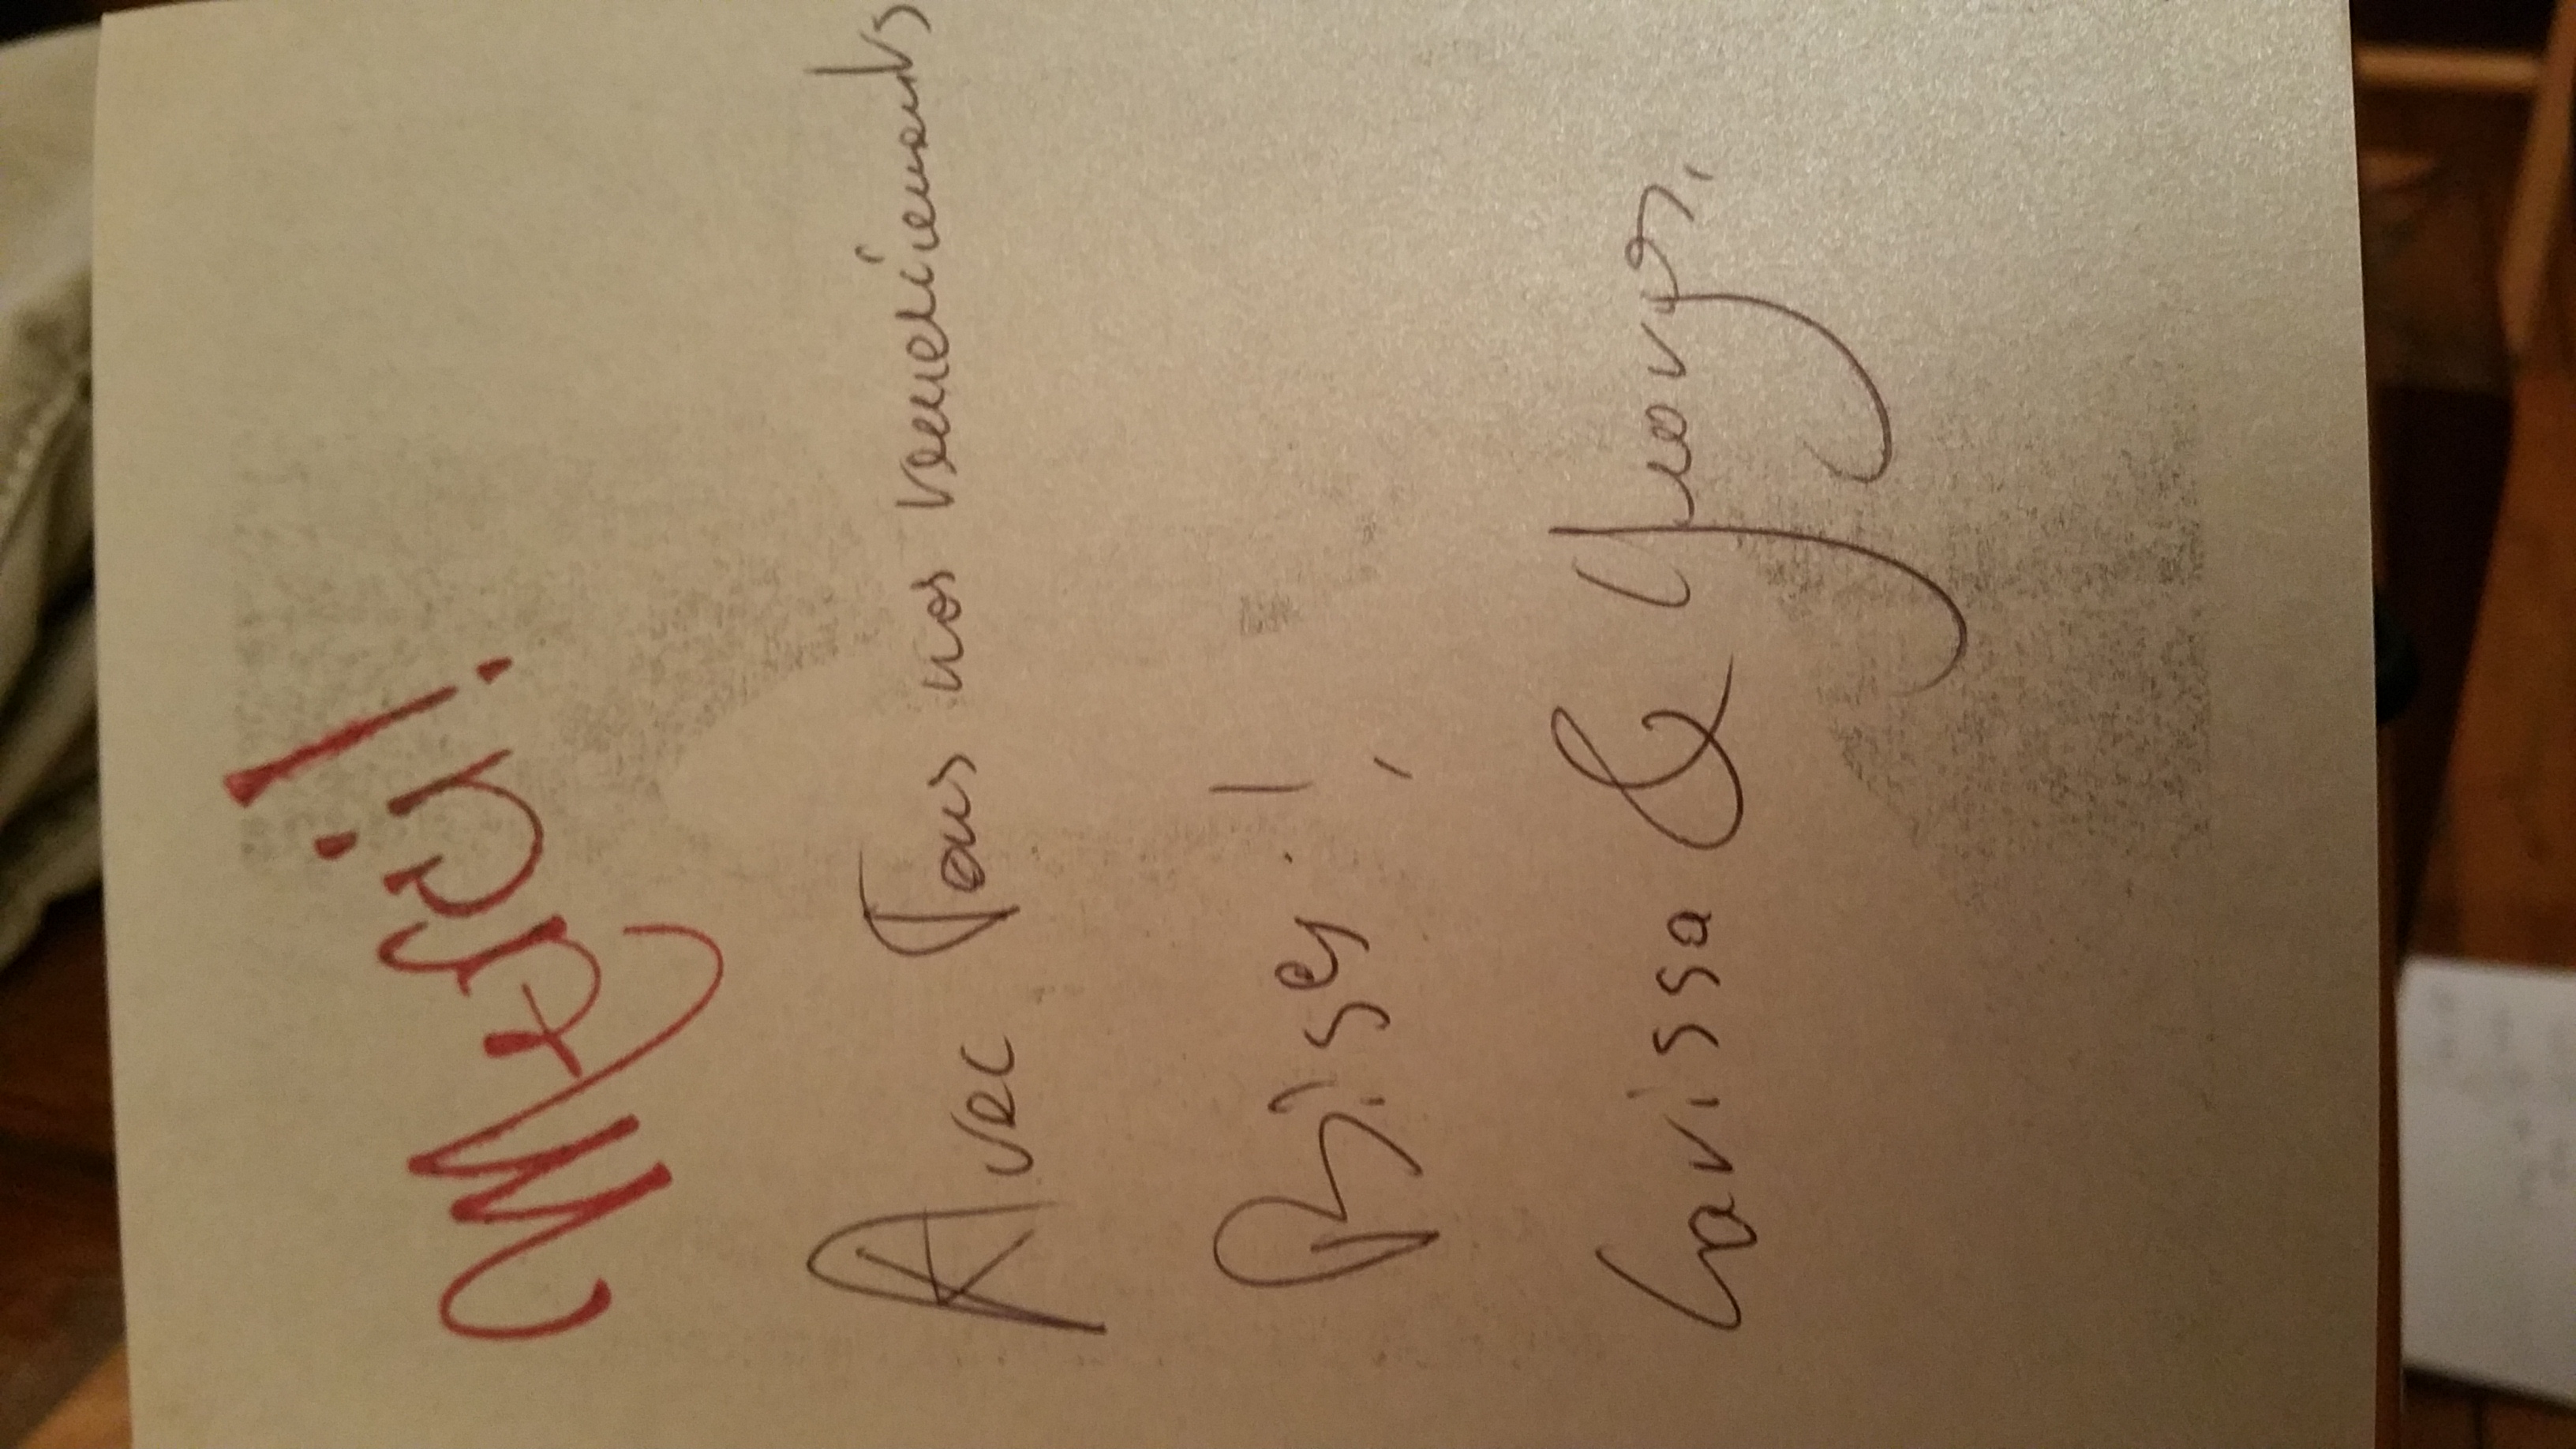 Merci!
Avec Tous nos remerciements
Bises!,
Larissa & Georg,